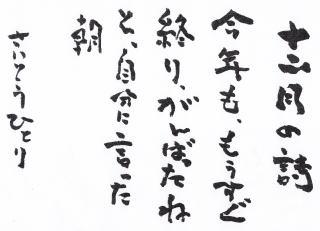 十二月の詩
今年も、もうすぐ
終り、がんばったね
と、自分に言った
朝
さいとうひとり